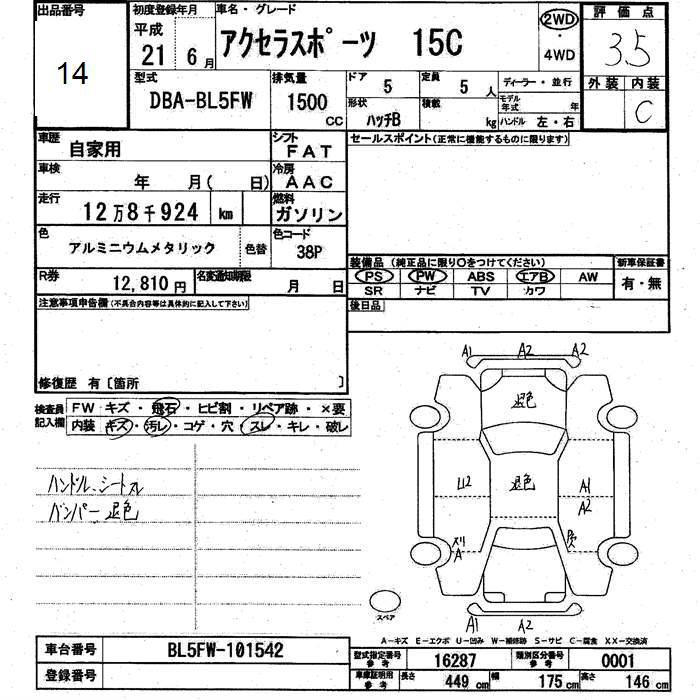 出品番号 14
初度登録年月 平成 21 6月
車名・グレード アクセラスポーツ 15C
2WD・4WD
評価点 3.5
型式 DBA-BL5FW
排気量 1500 CC
ドア 5
定員 5 人
形状 ハッチB
積載 kg
ディーラー・並行
モデル年式 年
ハンドル 左・右
外装 内装 C
車歴 自家用
シフト FAT
車検 年 月( 日)
冷房 AAC
走行 12万8千924 km
燃料 ガソリン
色 アルミニウムメタリック 色替
色コード 38P
R券 12,810円
名変通知期限 月 日
セールスポイント(正常に機能するものに限ります)
装備品 (純正品に限り○をつけてください)
PS PW ABS エアB AW
SR ナビ TV カワ
新車保証書 有・無
後日品
注意事項申告欄(不具合内容等は具体的に記入して下さい)
修復歴 有〔箇所 〕
検査員記入欄
FW キズ・飛石・ヒビ割・リペア跡・×要
内装 キズ・汚レ・コゲ・穴・スレ・キレ・破レ
ハンドル、シートスレ
バンパー退色
A1 A2 A2
退色
U2 退色 A1
A2
A
A1 A2
スペア
A-キズ E-エクボ U-凹み W-補修跡 S-サビ C-腐食 XX-交換済
車台番号 BL5FW-101542
登録番号
型式指定番号 参考 16287
類別区分番号 参考 0001
車庫証明用 参考 長さ 449 cm 幅 175 cm 高さ 146 cm